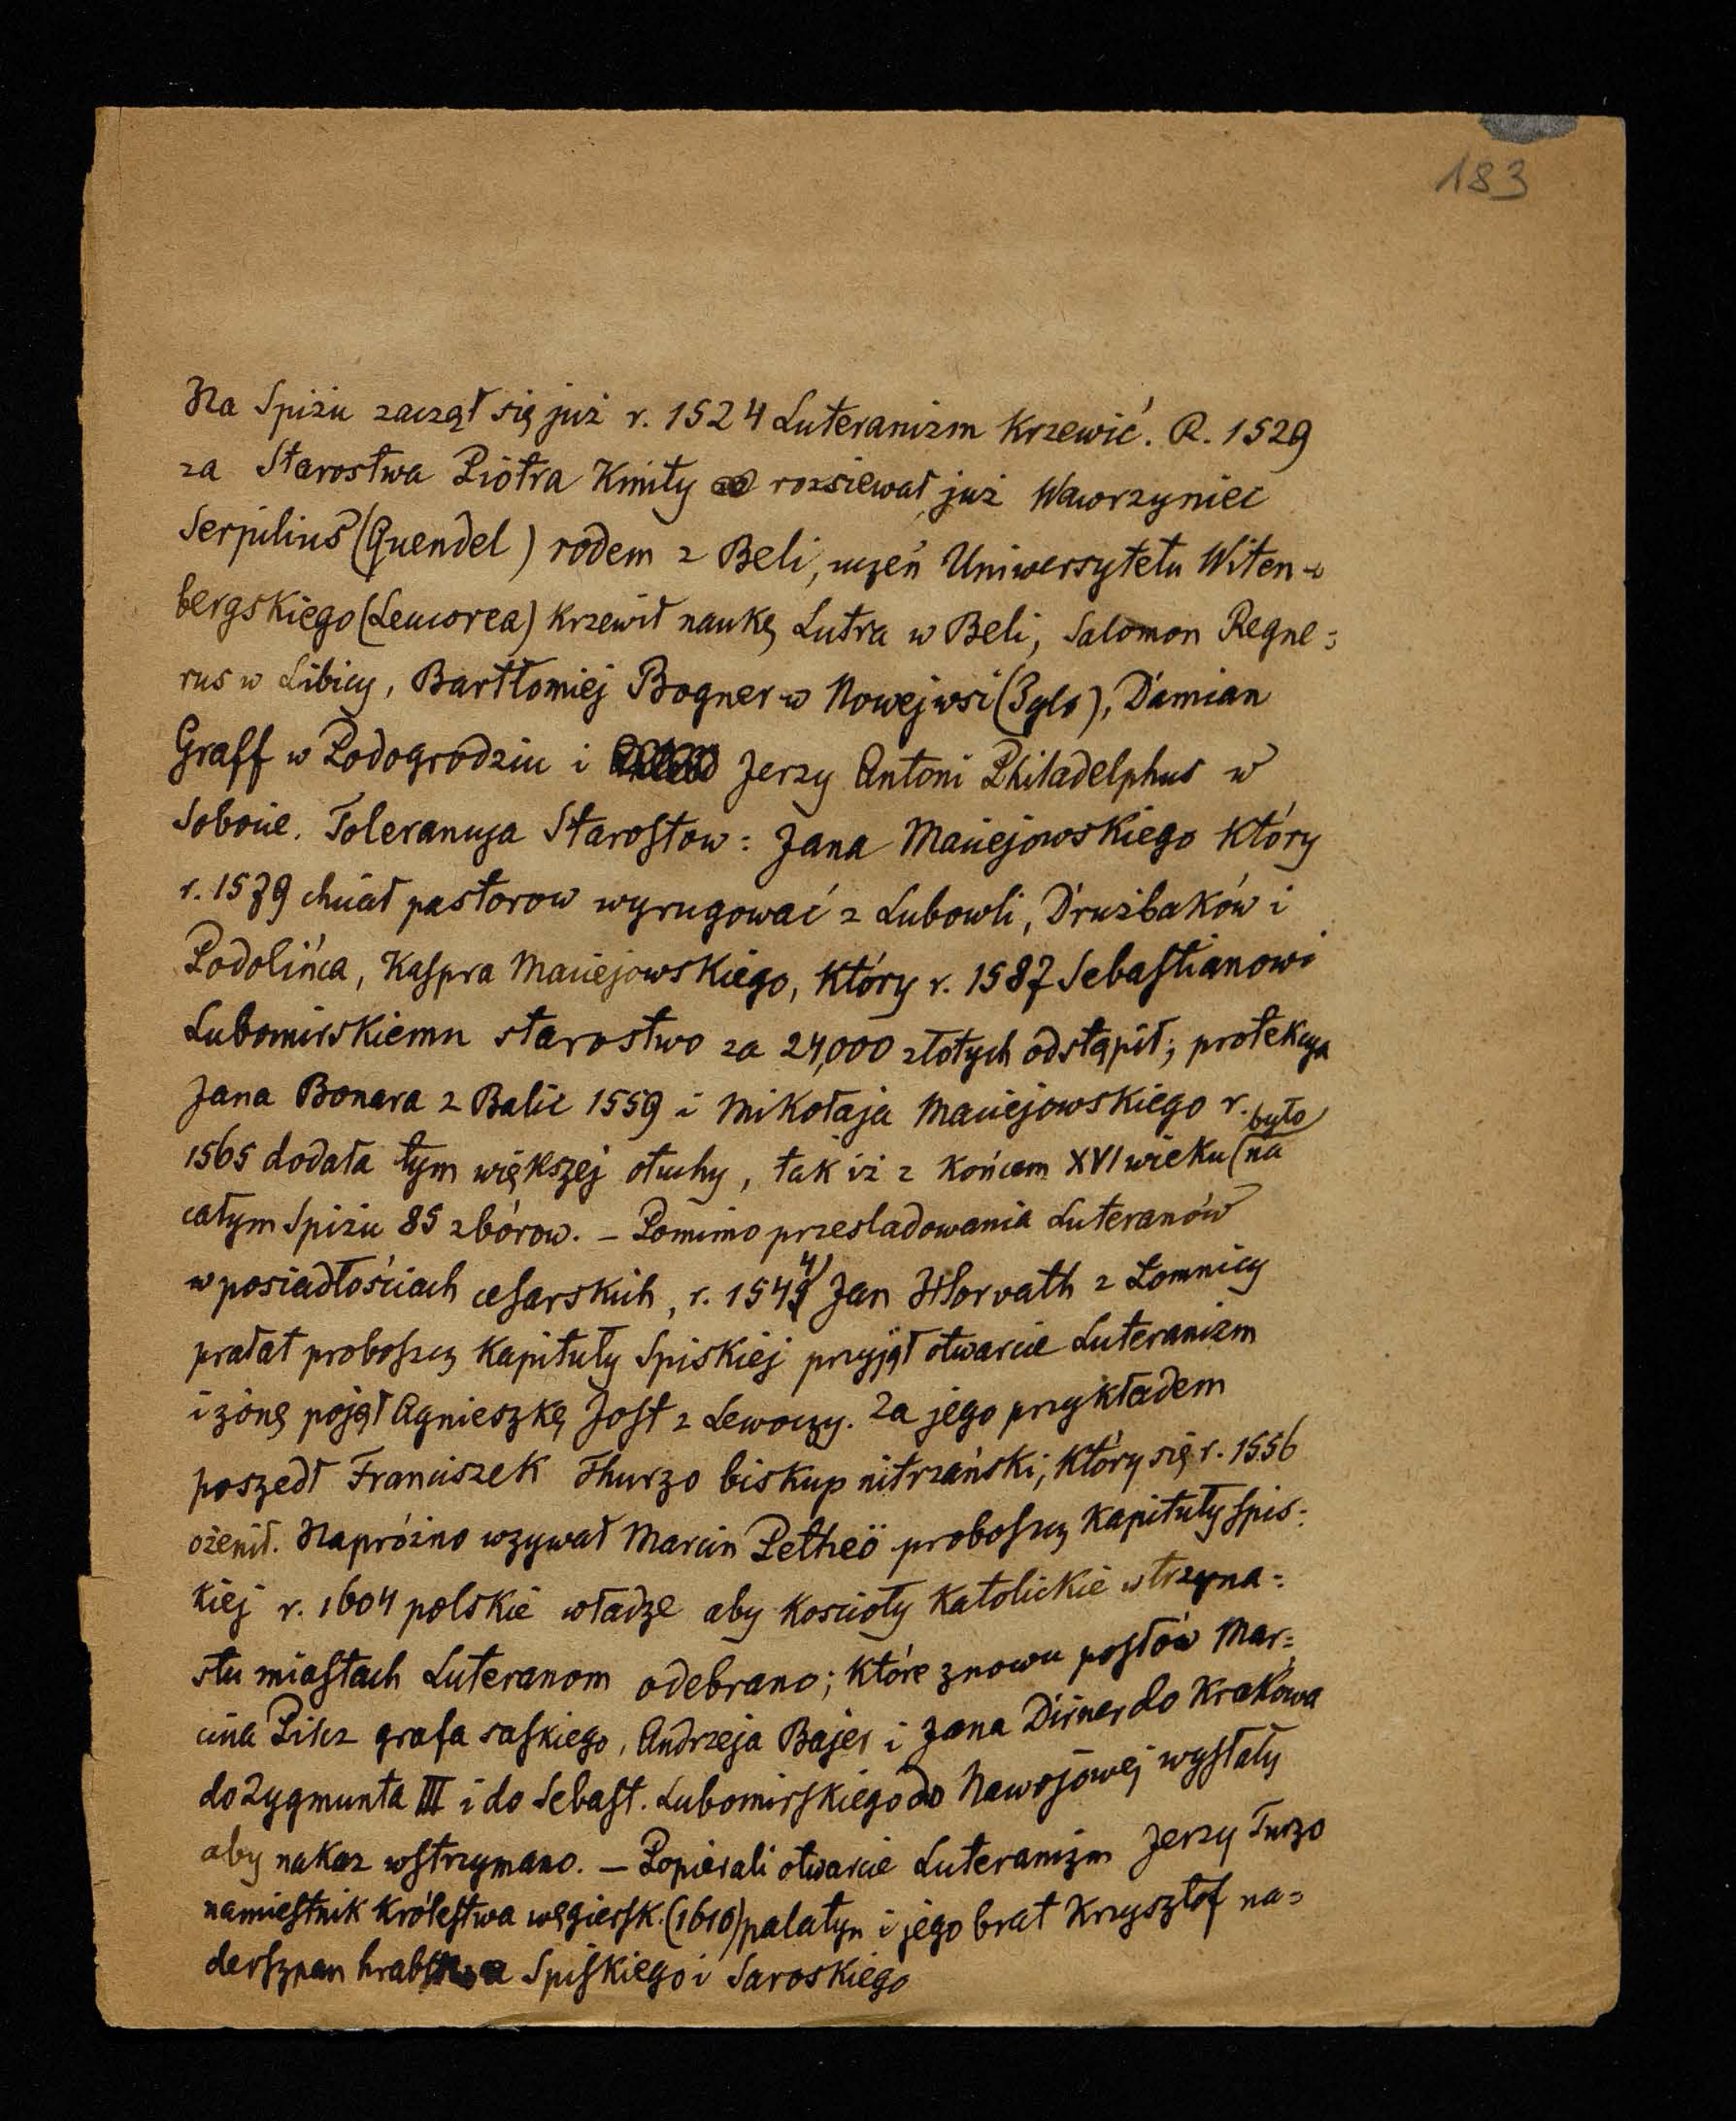 183
Na Spiżu zaczął się już r. 1524 Luteranizm krzewić. R. 1529
za Starostwa Piotra Kmity rozsiewał już Wawrzyniec
Serpilius (Quendel) rodem z Beli, uczeń Uniwersytetu Witen-
bergskiego (Leucorea) krzewił naukę Lutra w Beli, Salomon Regne=
rus w Libicy, Bartłomiej Bogner w Nowejwsi (Iglo), Damian
Graff w Podogrodziu i Jerzy Antoni Philadelphus w
Sobocie. Tolerancya Starostow: Jana Maciejowskiego który
r. 1579 chciał pastorow wyrugować z Lubowli, Drużbaków i
Podolińca, Kaspra Maciejowskiego, który r. 1587 Sebastianowi
Lubomirskiemu starostwo za 24,000 złotych odstąpił; protekcya
Jana Bonara z Balic 1559 i Mikołaja Maciejowskiego r.
1565 dodała tym większej otuchy, tak iż z końcem XVI wieku było na
całym Spiżu 85 zbórow. – Pomimo przesladowania Luteranów
w posiadłościach cesarskich, r. 1544 Jan Horvath z Łomnicy
prałat proboszcz Kapituły Spiskiej przyjął otwarcie Luteranizm
i żonę pojął Agnieszkę Jost z Lewoczy. Za jego przykładem
poszedł Franciszek Thurzo biskup nitrzański, który się r. 1556
ożenił. Napróżno wzywał Marcin Petheö proboszcz Kapituły spis=
kiej r. 1604 polskie władze aby kościoły katolickie w trzyna=
stu miastach Luteranom odebrano; które znowu posłów Mar=
cina Pilcz grafa saskiego, Andrzeja Bajer i Jana Dirner do Krakowa
do Zygmunta III i do Sebast. Lubomirskiego do Nawojowej wysłały
aby nakaz wstrzymano. – Popierali otwarcie Luteranizm Jerzy Turzo
namiestnik Królestwa węgiersk. (1610) palatyn i jego brat Krzysztof na=
derszpan hrabstwa Spiskiego i Saroskiego